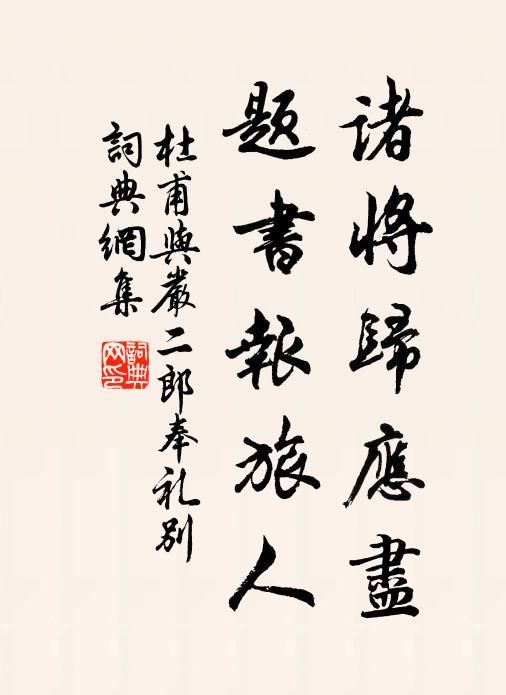 諸將歸應盡
題書報旅人
杜甫與嚴二郎奉礼別
詞典網集
詞典网印